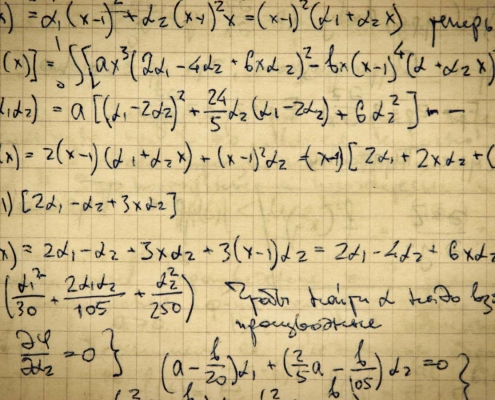 x) = α₁(x-1)² + α₂(x-1)²x = (x-1)²(α₁+α₂x) теперь
(x)] = ∫₀¹ [ax³(2α₁-4α₂+6xα₂)² - bx(x-1)⁴(α+α₂x)
α₁α₂) = a[(α₁-2α₂)² + 24/5 α₂(α₁-2α₂) + 6α₂²] - -
x) = 2(x-1)(α₁+α₂x) + (x-1)²α₂ = (x-1)[2α₁+2xα₂+(
1)[2α₁-α₂+3xα₂]
x) = 2α₁-α₂+3xα₂+3(x-1)α₂ = 2α₁-4α₂+6xα₂
(α₁²/30 + 2α₁α₂/105 + α₂²/250) Чтобы найти α надо вз
∂φ/∂α₂ = 0 }
(a - b/20)α₁ + (2/5 a - b/105)α₂ = 0 }